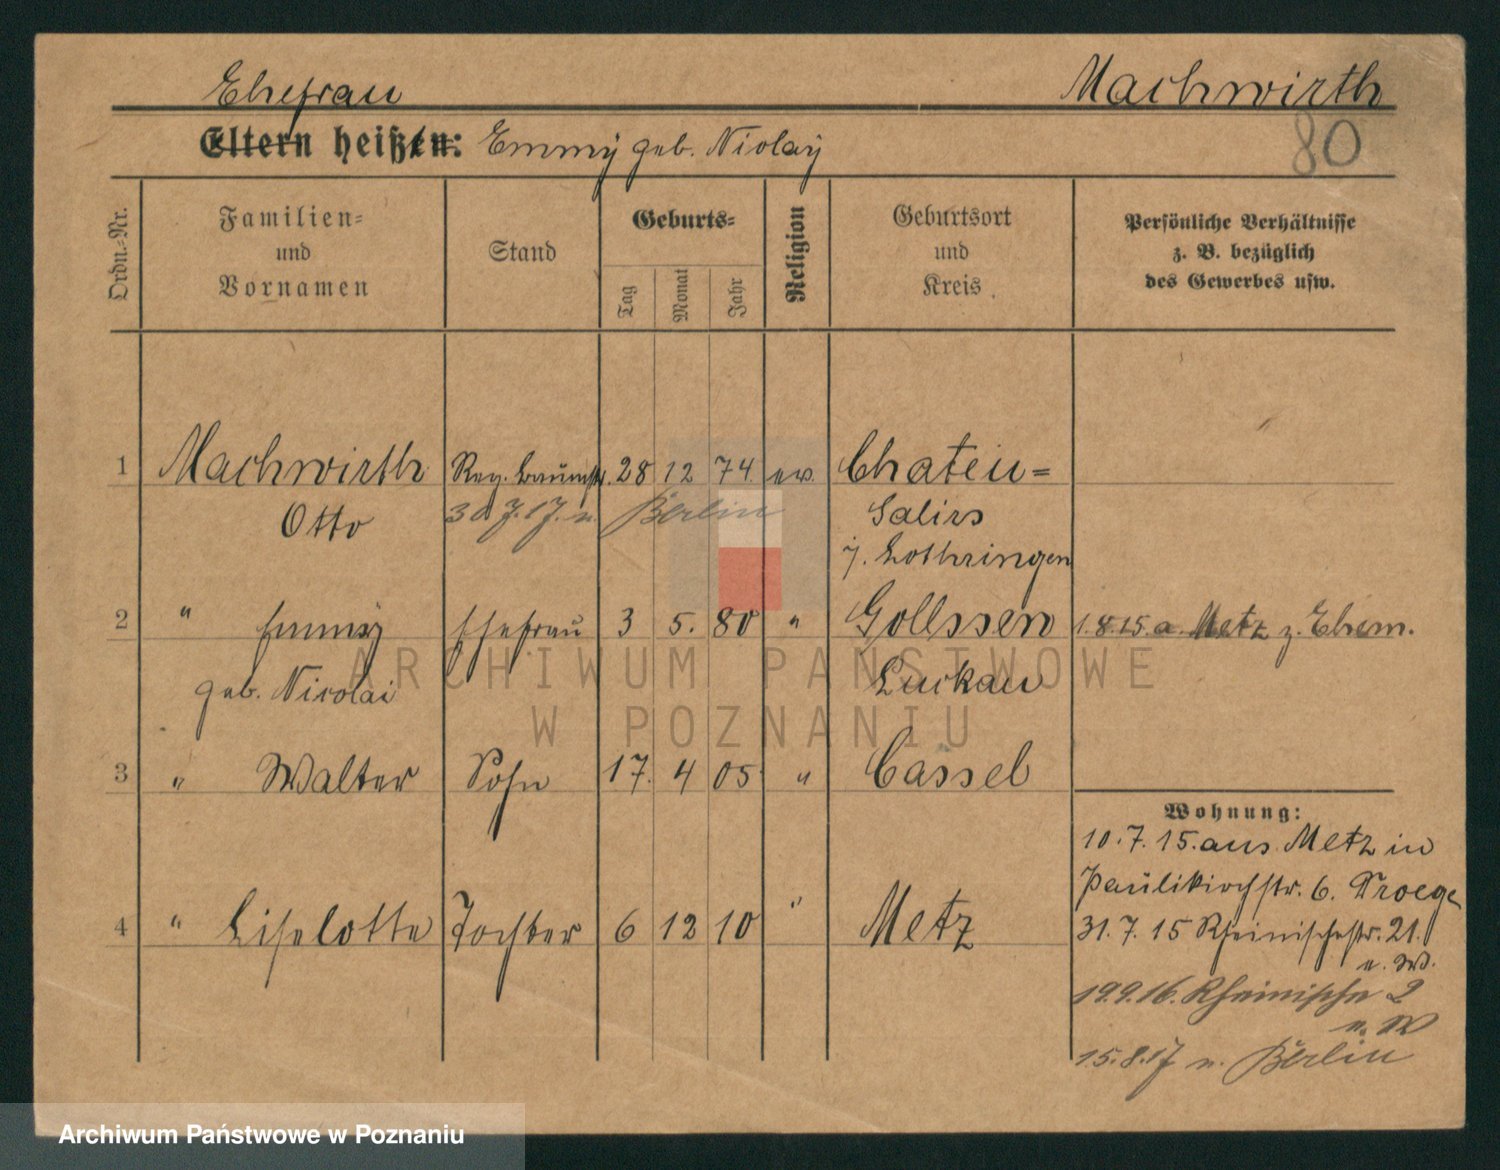 Ehefrau Machwirth
Eltern heißen: Emmy geb. Niolay 80
Ordn.=Nr. Familien= und Vornamen Stand Geburts= Tag Monat Jahr Religion Geburtsort und Kreis Persönliche Verhältnisse z. B. bezüglich des Gewerbes usw.
1 Machwirth Reg. Baumstr. 28 12 74. ev. Chateu=
Otto 30.7.17. n. Berlin Salirs
i. Lothringen
2 " Emmy Ehefrau 3 5. 80 " Gollssen 1.8.15. a. Metz z. Ehem.
geb. Nicolai Luckau
3 " Walter Sohn 17. 4 05 " Cassel
Wohnung:
10.7.15. aus Metz in
Paulikirchstr. 6.
4 " Liselotte Tochter 6 12 10 " Metz
31.7.15 Rheinischestr. 21.
n. W.
19.9.16. Rheinische 2
n. W
15.8.17 n. Berlin
ARCHIWUM PAŃSTWOWE
W POZNANIU
Archiwum Państwowe w Poznaniu